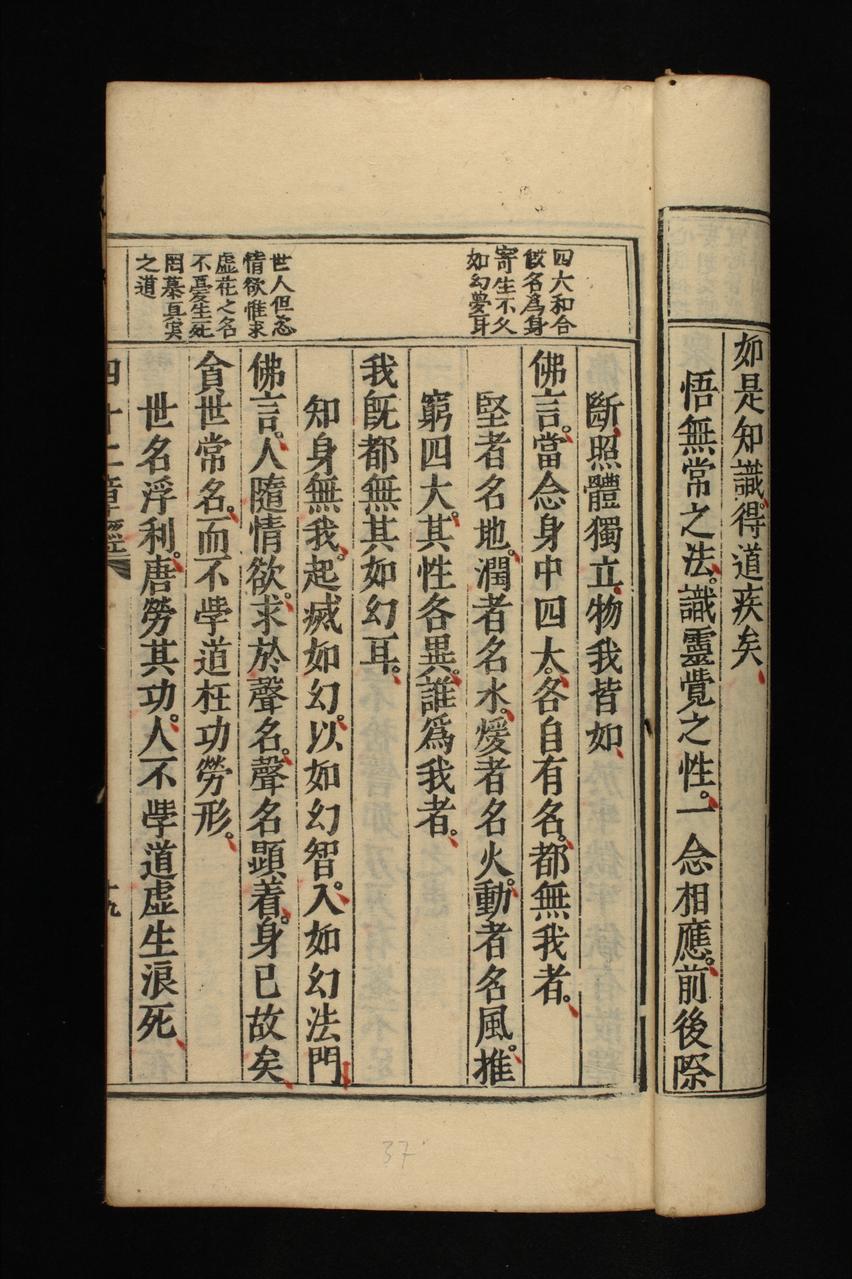 如是知識。得道疾矣
悟無常之法。識靈覺之性。一念相應。前後際
四大和合
假名為身
寄生不久
如幻夢耳
斷照體獨立物我皆如
佛言。當念身中四大。各自有名。都無我者。
堅者名地。潤者名水。煖者名火。動者名風。推
窮四大。其性各異。誰為我者。
我既都無其如幻耳。
知身無我。起滅如幻。以如幻智。入如幻法門
世人但恣
情欲惟求
虛花之名
不憂生死
罔慕真實
之道
佛言。人隨情欲。求於聲名。聲名顯着。身已故矣
貪世常名。而不學道枉功勞形。
世名浮利。唐勞其功。人不學道虛生浪死
四十二章經
十九
37